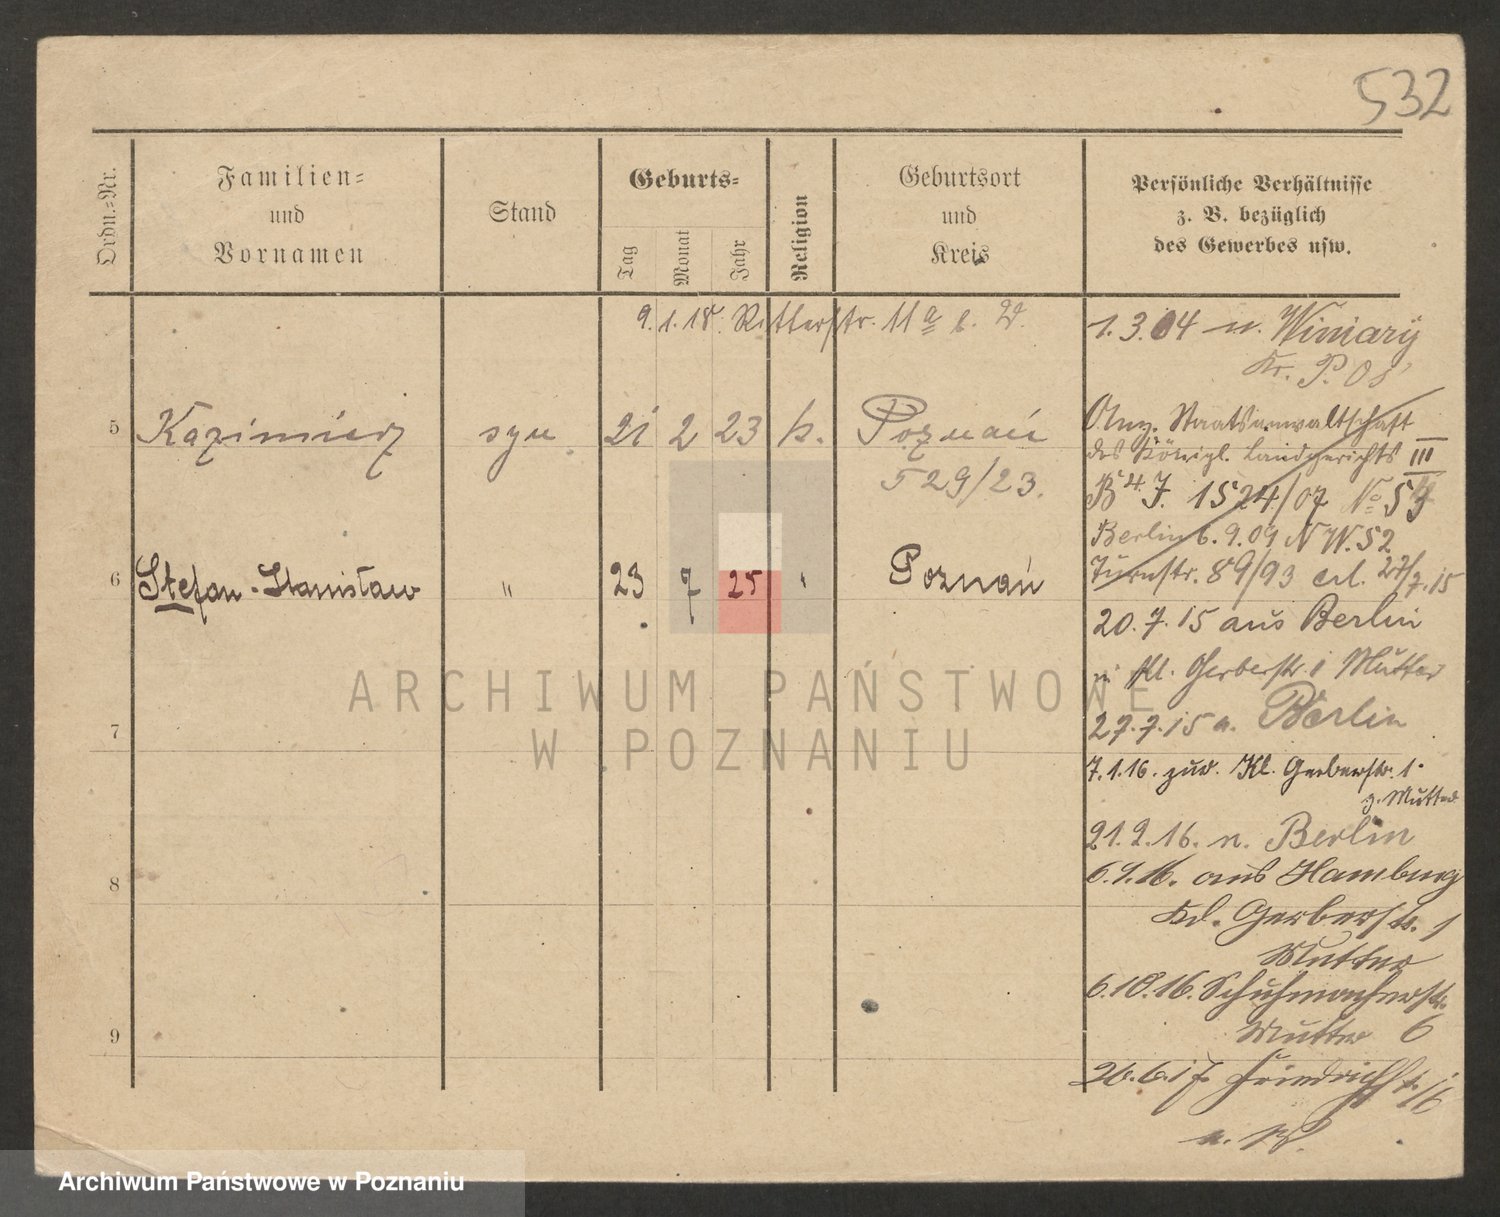 532
Ordn.-Nr.
Familien-
und
Vornamen
Stand
Geburts-
Tag
Monat
Jahr
Religion
Geburtsort
und
Kreis
Persönliche Verhältnisse
z. B. bezüglich
des Gewerbes usw.
9.1.18. Ritterstr. 11a b.
1.3.04 n. Winiary
Kr. P. Os
5 Kazimierz syn 21 2 23 k. Poznań
529/23.
Ang. Staatsanwaltschaft
des Königl. Landgerichts III
B 4. J. 1524/07 No 53
Berlin 6.9.09 N W. 52
Turmstr. 89/93 erl. 27/7.15
6 Stefan-Stanisław " 23 7 25 " Poznań
20.7.15 aus Berlin
Kl. Gerberstr. 1 Mutter
7
27.7.15 n. Berlin
7.1.16. zur. Kl. Gerberstr. 1.
z. Mutter
21.2.16. n. Berlin
8
6.9.16. aus Hamburg
Kl. Gerberstr. 1
Mutter
6.10.16. Schuhmacherstr.
Mutter 6
9
26.6.17 Friedrichstr. 16
ARCHIWUM PAŃSTWOWE
W POZNANIU
Archiwum Państwowe w Poznaniu